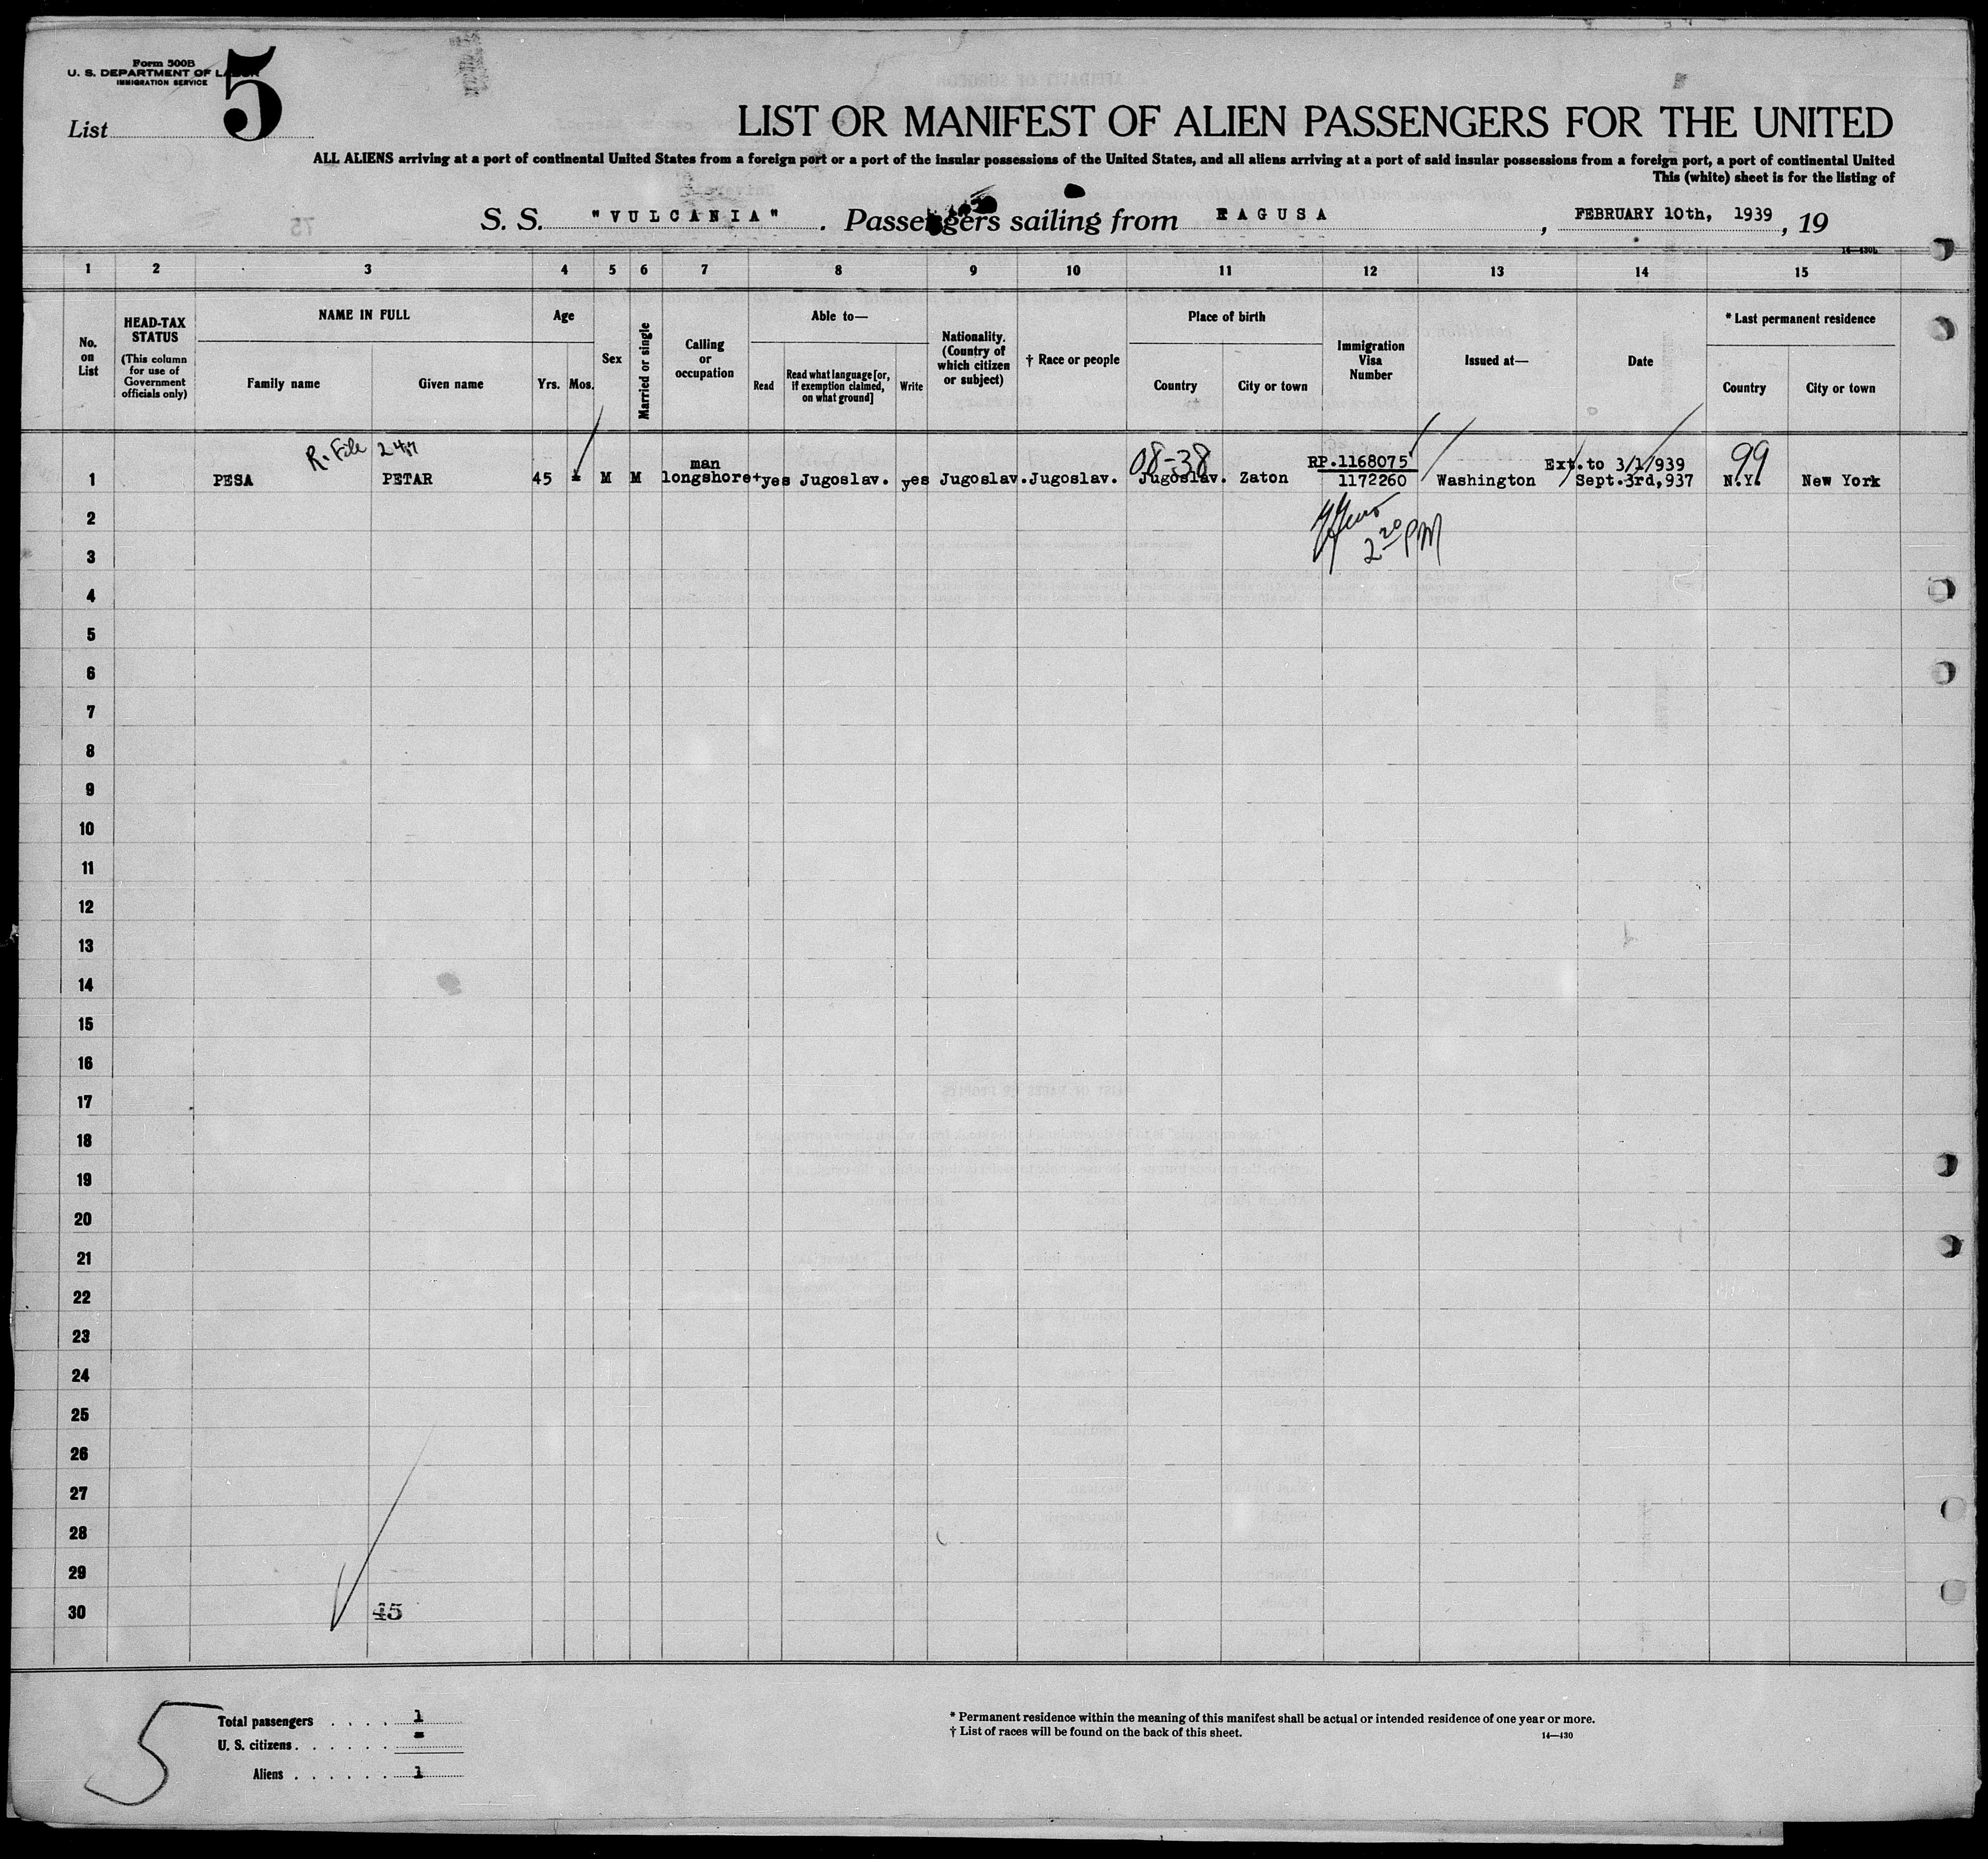 Form 500B
U. S. DEPARTMENT OF LABOR
IMMIGRATION SERVICE
List 5
LIST OR MANIFEST OF ALIEN PASSENGERS FOR THE UNITED
ALL ALIENS arriving at a port of continental United States from a foreign port or a port of the insular possessions of the United States, and all aliens arriving at a port of said insular possessions from a foreign port, a port of continental United
This (white) sheet is for the listing of
S. S. "VULCANIA". Passengers sailing from RAGUSA, FEBRUARY 10th, 1939, 19
14—430b
1 2 3 4 5 6 7 8 9 10 11 12 13 14 15
No. on List
HEAD-TAX STATUS
(This column for use of Government officials only)
NAME IN FULL
Family name Given name
Age
Yrs. Mos.
Sex
Married or single
Calling or occupation
Able to—
Read
Read what language [or, if exemption claimed, on what ground]
Write
Nationality. (Country of which citizen or subject)
† Race or people
Place of birth
Country City or town
Immigration Visa Number
Issued at—
Date
* Last permanent residence
Country City or town
R. File
man 08-38 RP.1168075 Ext.to 3/1/939 99
1 PESA PETAR 45 M M longshore+yes Jugoslav. yes Jugoslav. Jugoslav. Jugoslav. Zaton 1172260 Washington Sept.3rd,937 N.Y. New York
2
2 20 PM
3
4
5
6
7
8
9
10
11
12
13
14
15
16
17
18
19
20
21
22
23
24
25
26
27
28
29
30 45
5
Total passengers . . . . 1
U. S. citizens . . . . . . -
Aliens . . . . . . 1
* Permanent residence within the meaning of this manifest shall be actual or intended residence of one year or more.
† List of races will be found on the back of this sheet.
14—430